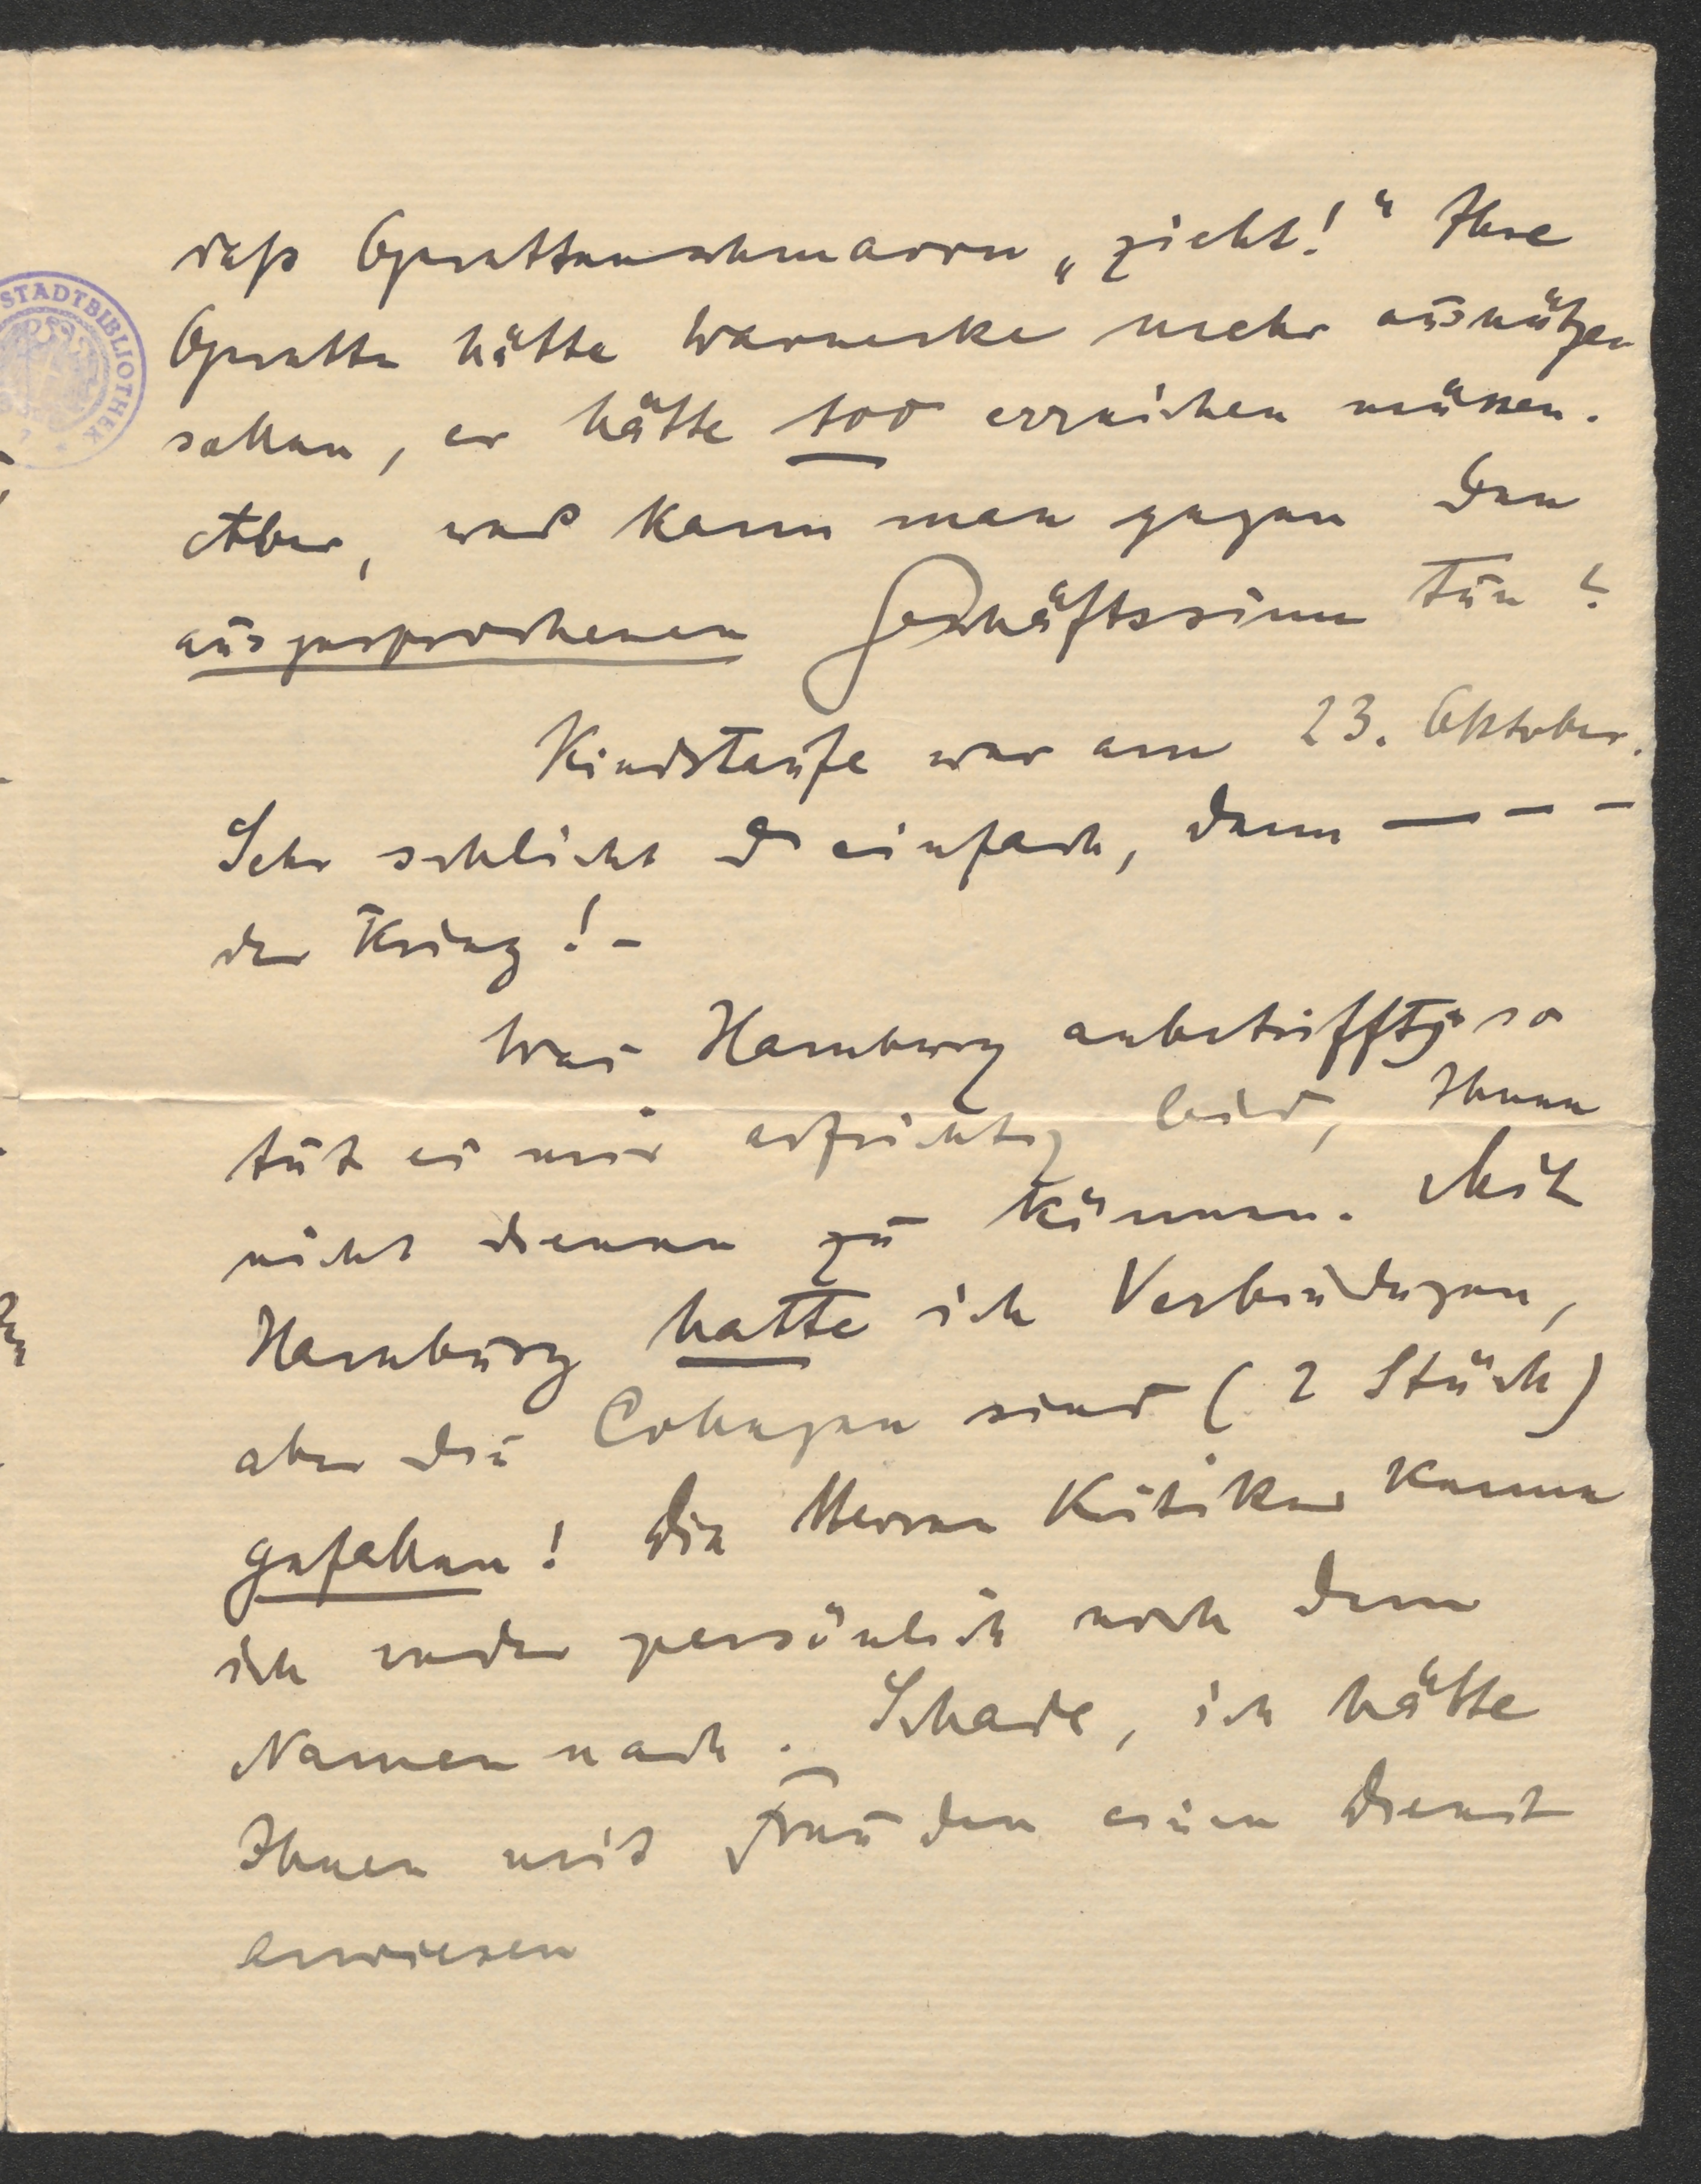 STADTBIBLIOTHEK
daß Operettenschmarrn „zieht!“ Ihre
Operette hätte Warnecke mehr ausnützen
sollen, er hätte 100 erreichen müssen.
Aber, was kann man gegen den
ausgesprochenen Geschäftssinn tun?
Kindstaufe war am 23. Oktober.
Sehr schlicht & einfach, denn — – –
der Krieg! –
Was Hamburg anbetrifft, so
tut es mir aufrichtig leid, Ihnen
nicht dienen zu können. Mit
Hamburg hatte ich Verbindungen,
aber die Collegen sind (2 Stück)
gefallen! Die Herren Kritiker kenne
ich weder persönlich noch dem
Namen nach. Schade, ich hätte
Ihnen mit Freuden einen Dienst
erwiesen